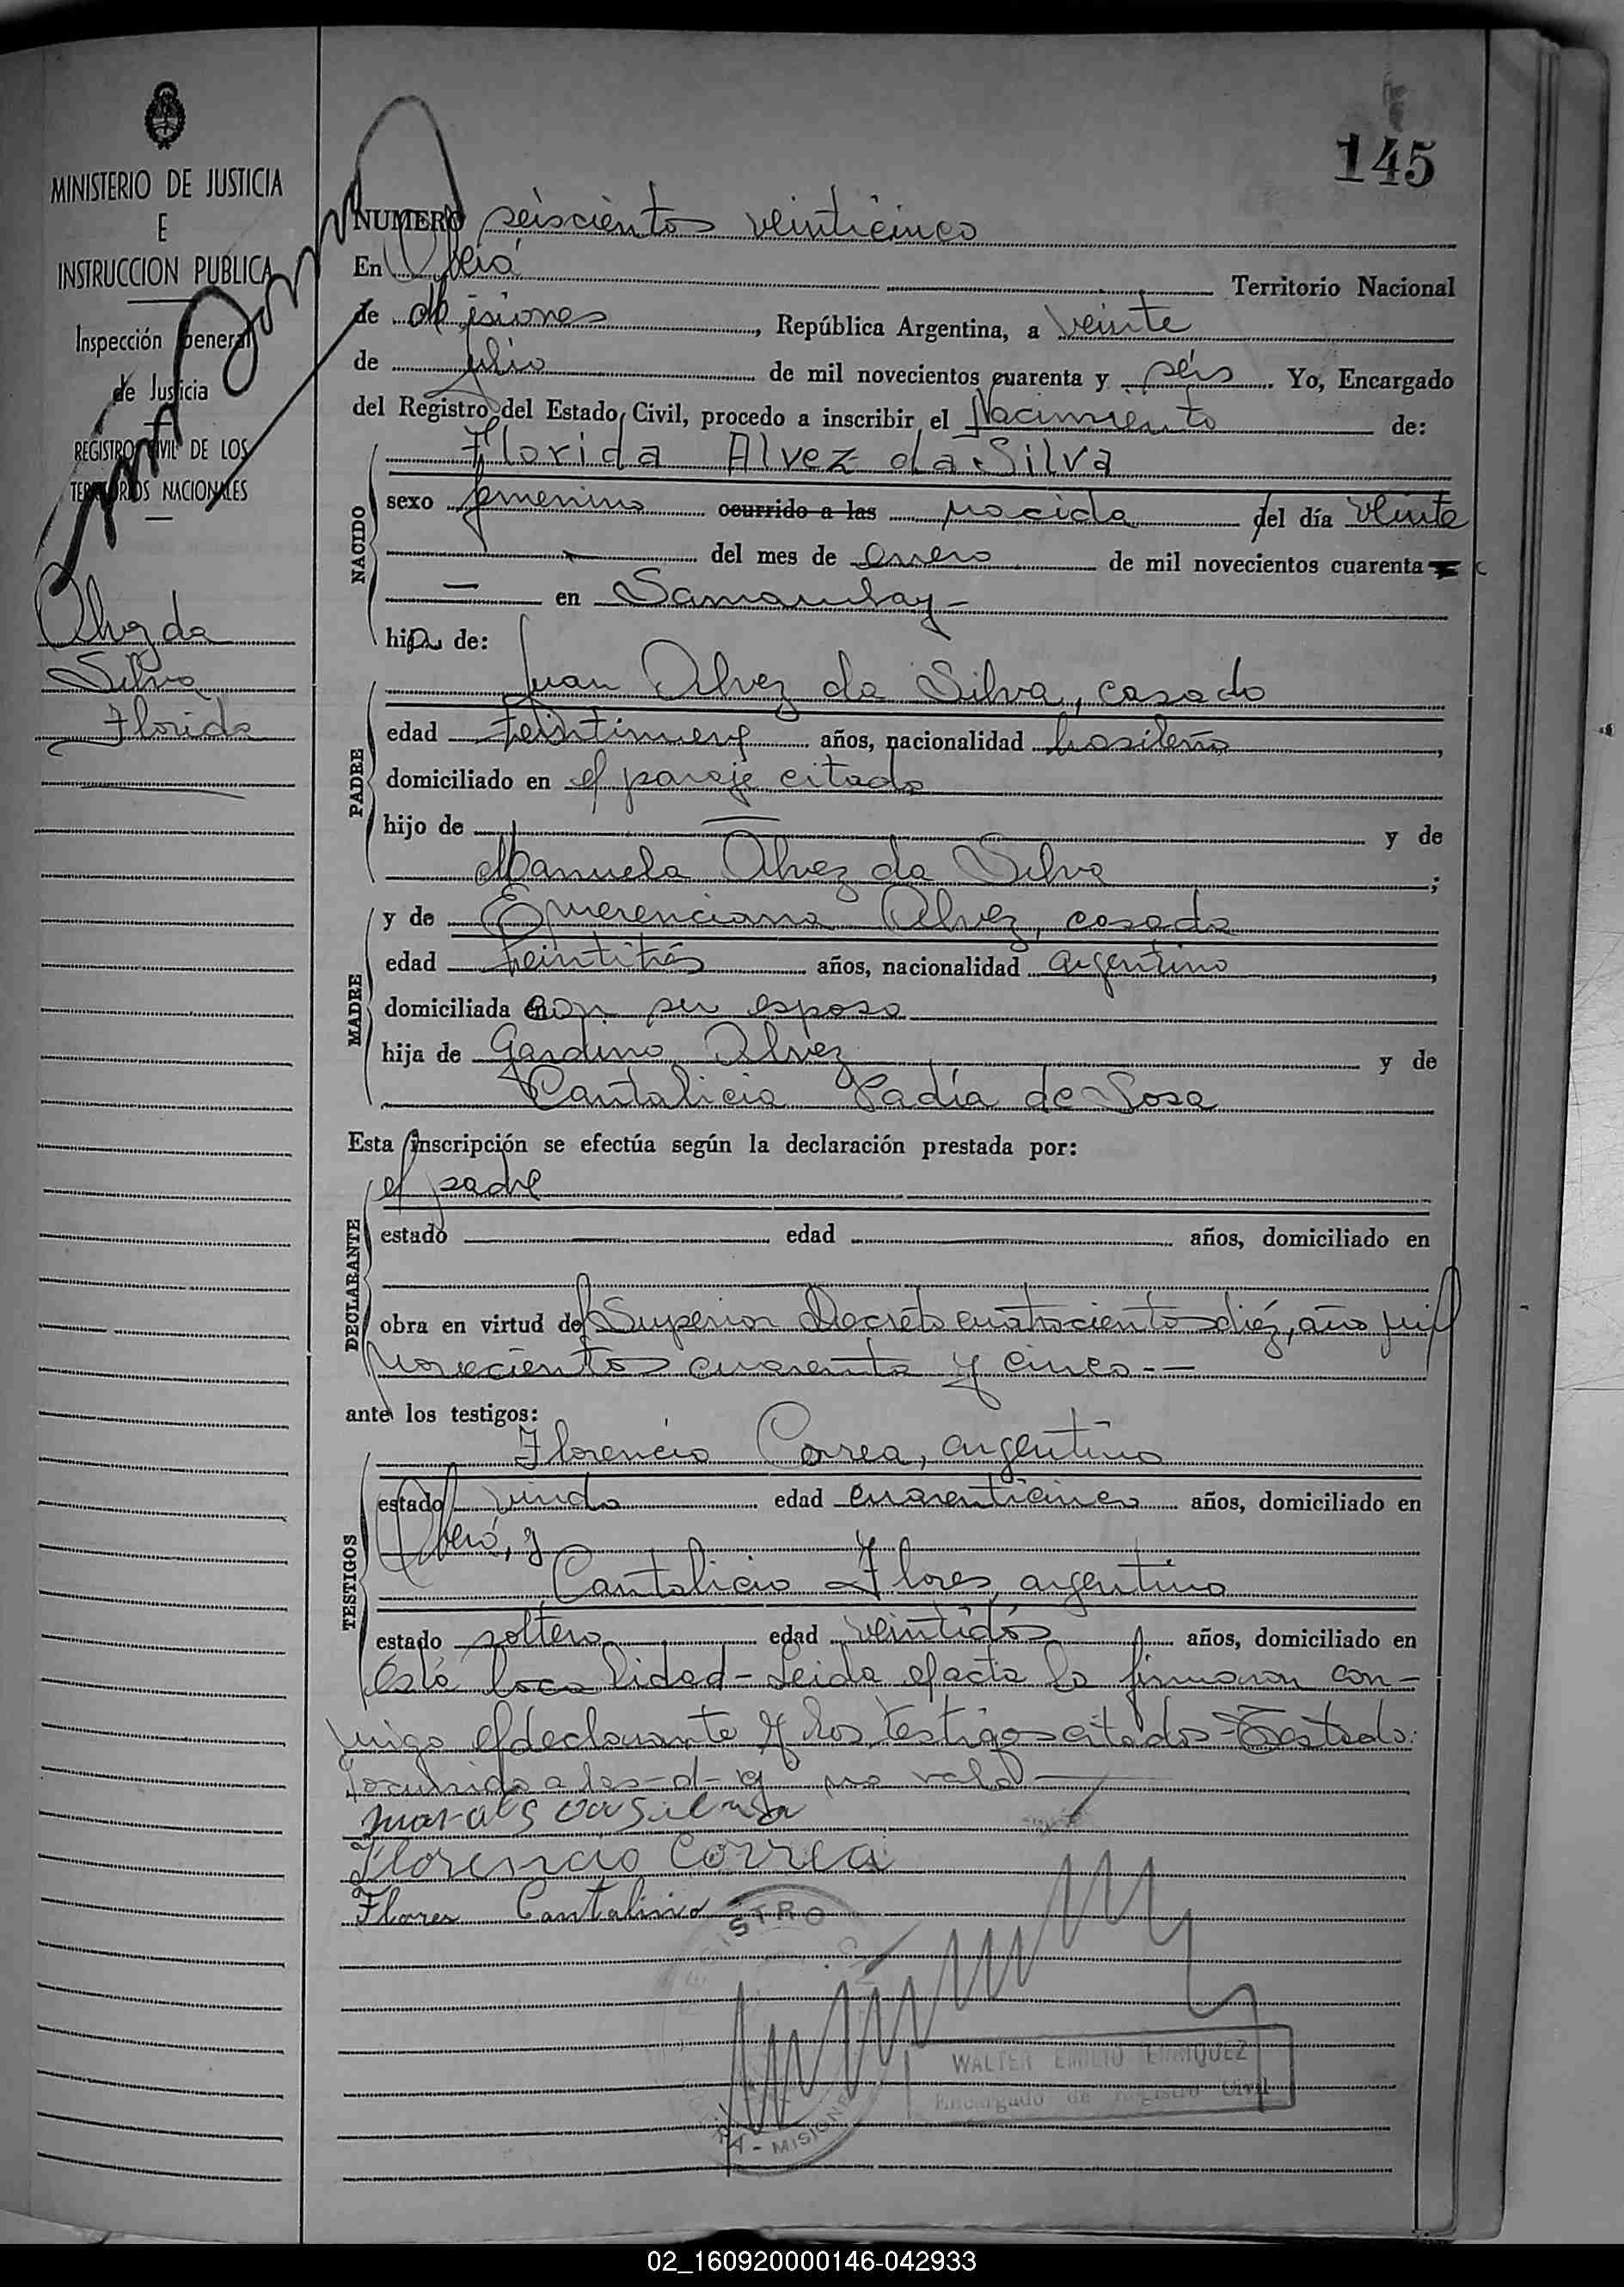 145
MINISTERIO DE JUSTICIA
E
INSTRUCCION PUBLICA
Inspección General
de Justicia
REGISTRO CIVIL DE LOS
TERRITORIOS NACIONALES
Alvez da
Silva
Florida
NUMERO seiscientos veinticinco
En Oberá Territorio Nacional
de Misiones, República Argentina, a veinte
de julio de mil novecientos cuarenta y séis Yo, Encargado
del Registro del Estado Civil, procedo a inscribir el Nacimiento de:
NACIDO
Florida Alvez da Silva
sexo femenino ocurrido a las nacida del día veinte
del mes de enero de mil novecientos cuarenta
— en Samambay -
hija de:
PADRE
Juan Alvez da Silva, casado
edad años, nacionalidad brasileña,
domiciliado en el paraje citado
hijo de — y de
Manuela Alvez da Silva ;
MADRE
y de Emerenciana Alvez, casada
edad años, nacionalidad argentina,
domiciliada con su esposo
hija de Gardino Alvez y de
Cantalicia Padía de Sosa
Esta inscripción se efectúa según la declaración prestada por:
DECLARANTE
el padre
estado — edad — años, domiciliado en
obra en virtud del Superior Decreto cuatrocientos diéz, año mil
novecientos cuarenta y cinco.-—
ante los testigos:
TESTIGOS
Florencio Correa, argentino
estado viudo edad cuarenticinco años, domiciliado en
Oberá, y
Cantalicio Flores, argentino
estado soltero edad veintidós años, domiciliado en
ésta localidad - Leida el acta la firmaron con-
migo el declarante y los testigos citados - Testado:
"ocurrido a las - d - y" no vale —
Florencio Correa
Flores Cantalicio
REGISTRO CIVIL
MISIONES
WALTER EMILIO ENRIQUEZ
Encargado de Registro Civil
02_160920000146-042933